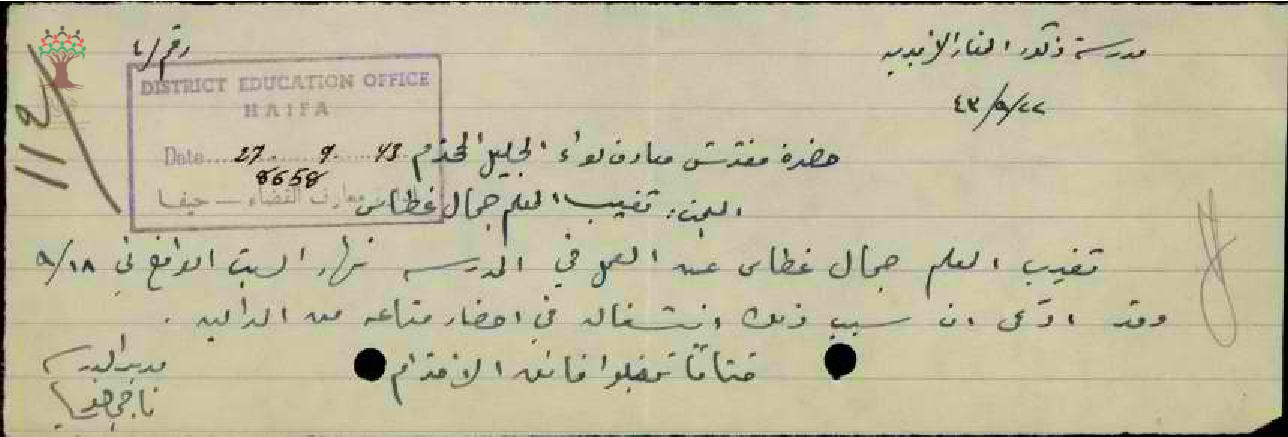 مدرسة ذكور الفار الاميرية
رقم /٤
٤٣/٩/٢٢
112
DISTRICT EDUCATION OFFICE
HAIFA
Date... 27 9 43
8658
معارف القضاء — حيفا
حضرة مفتش معارف لواء الجليل المحترم
تغيب المعلم جمال غطاس
تغيب المعلم جمال غطاس عن العمل في المدرسه نهار السبت الواقع في ٩/١٨
وقد ادعى ان سبب ذلك انشغاله في احضار متاعه من الداليه .
ختامًا تفضلوا فائق الاحترام
مدير المدرسه
ناجي